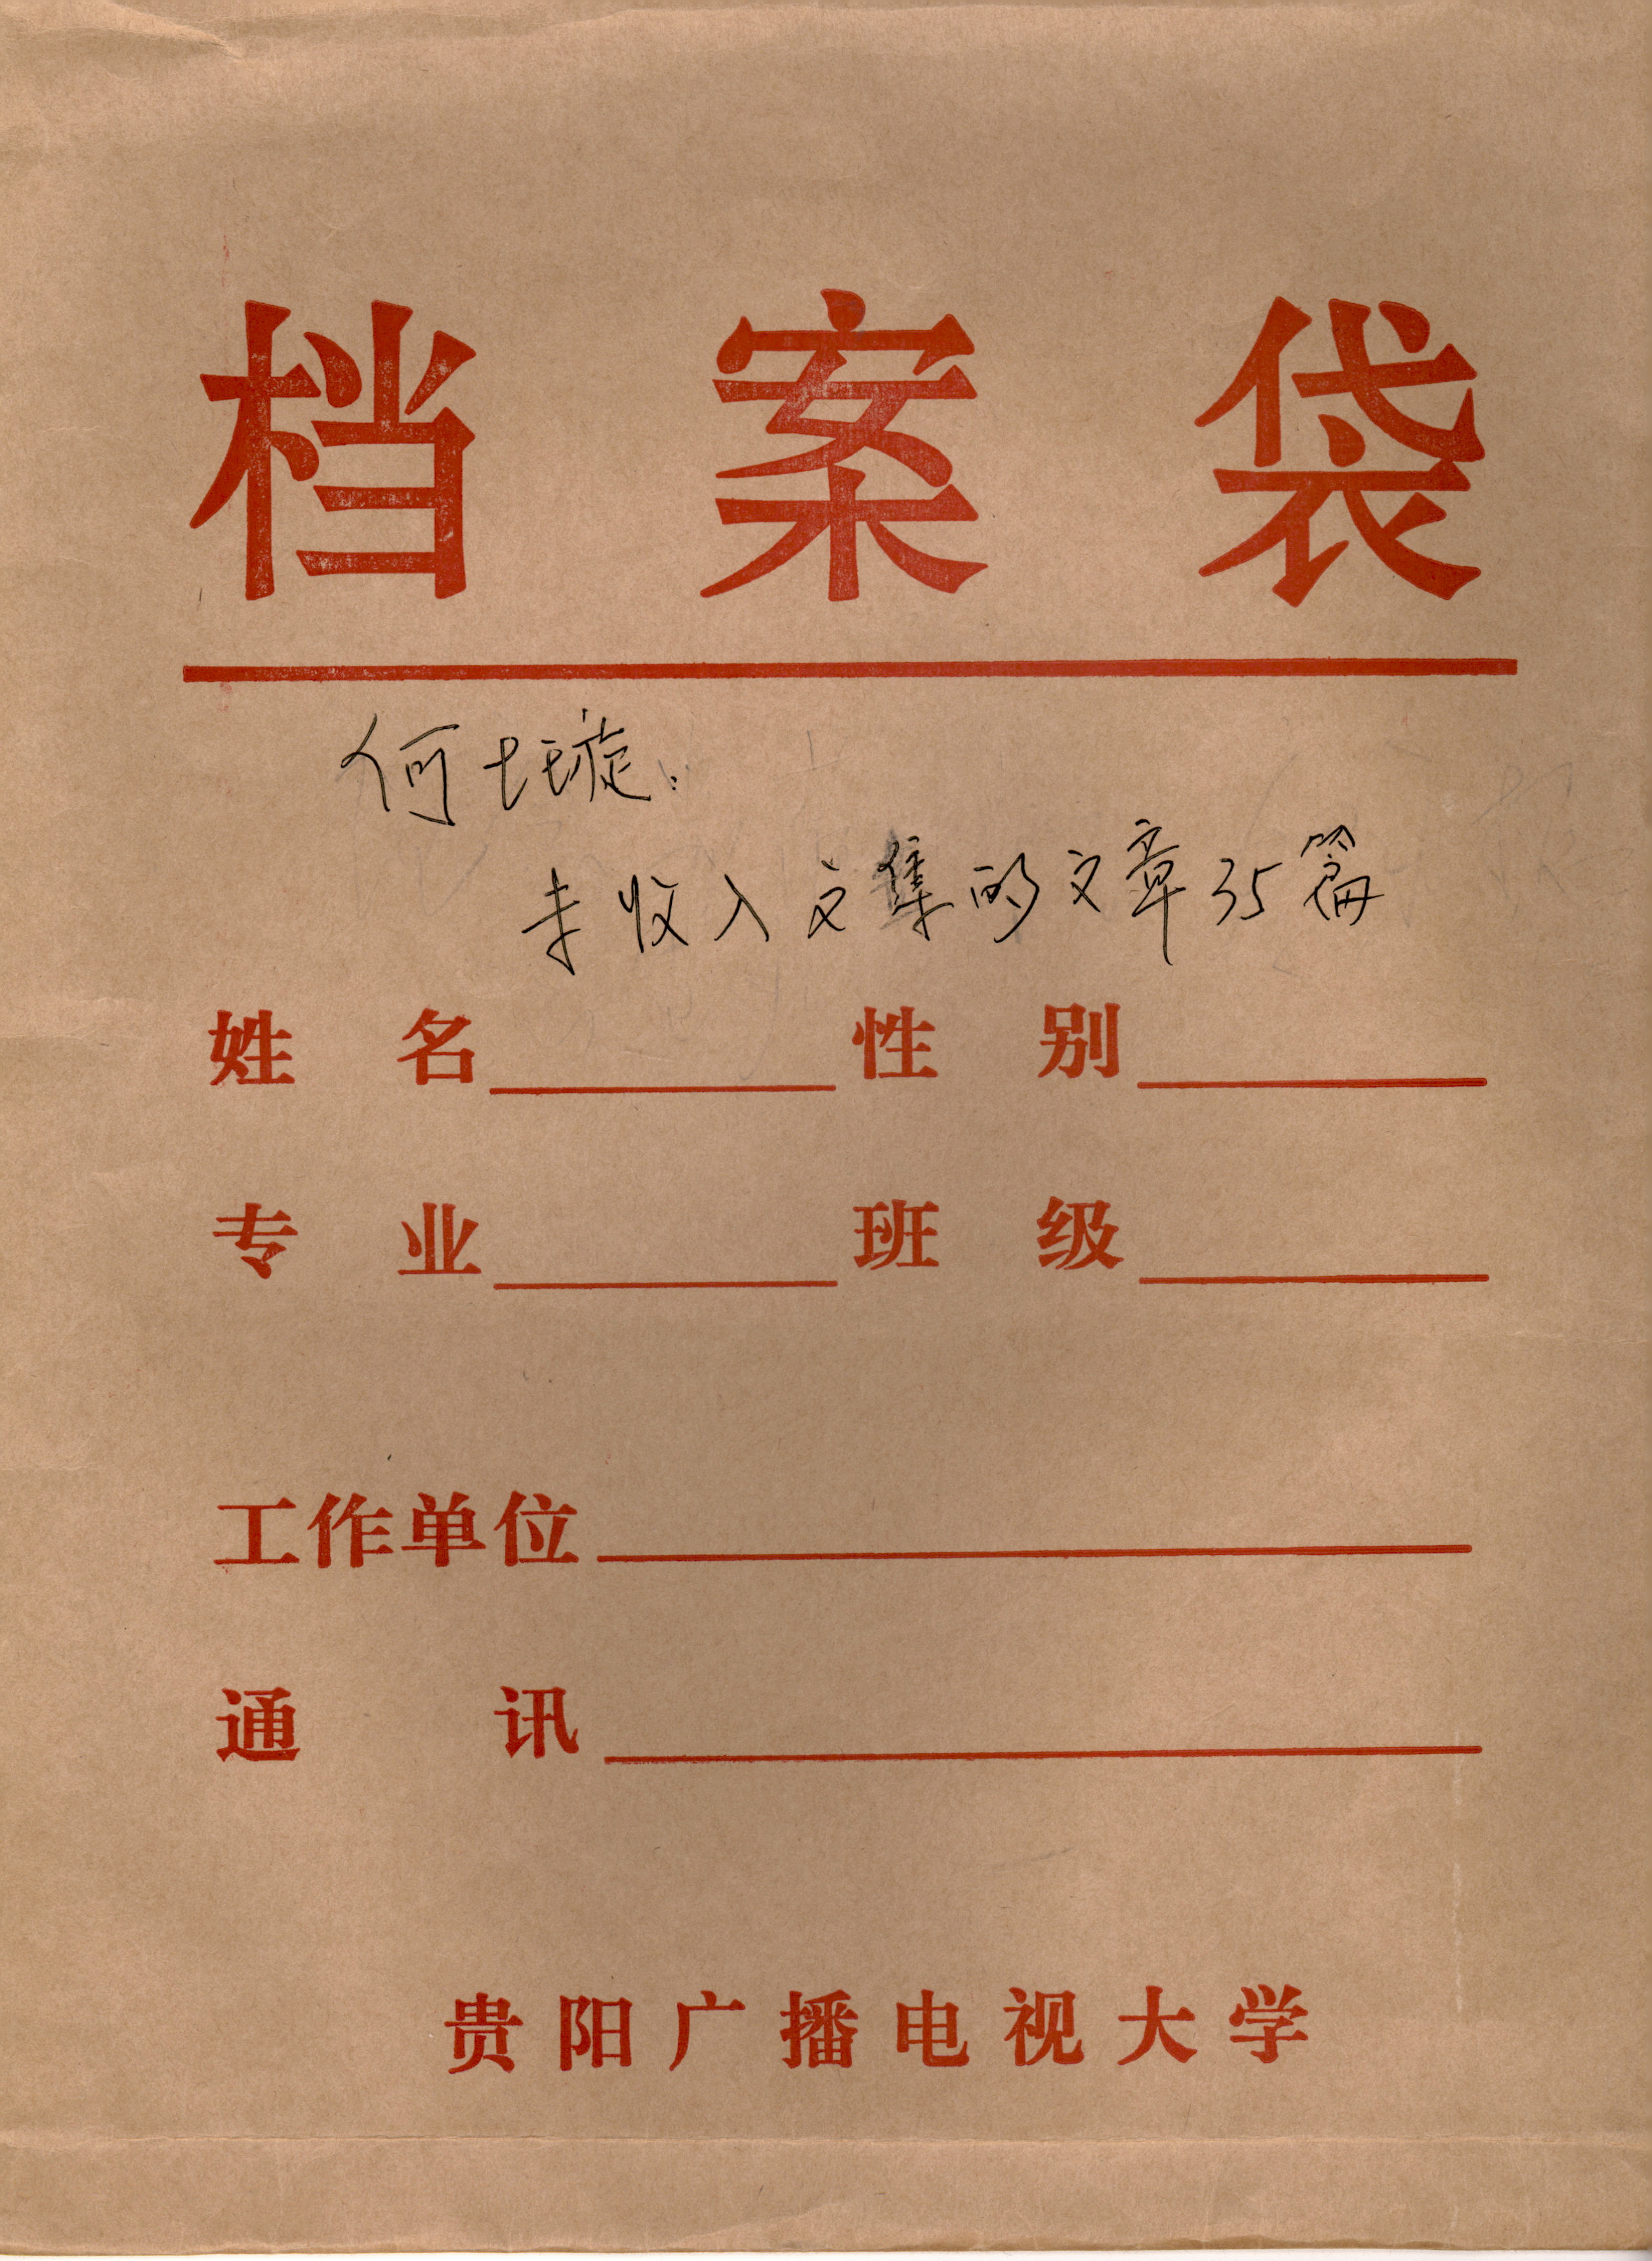 档案袋
何士璇.
未收入文集的文章35篇
姓名 性别
专业 班级
工作单位
通讯
贵阳广播电视大学